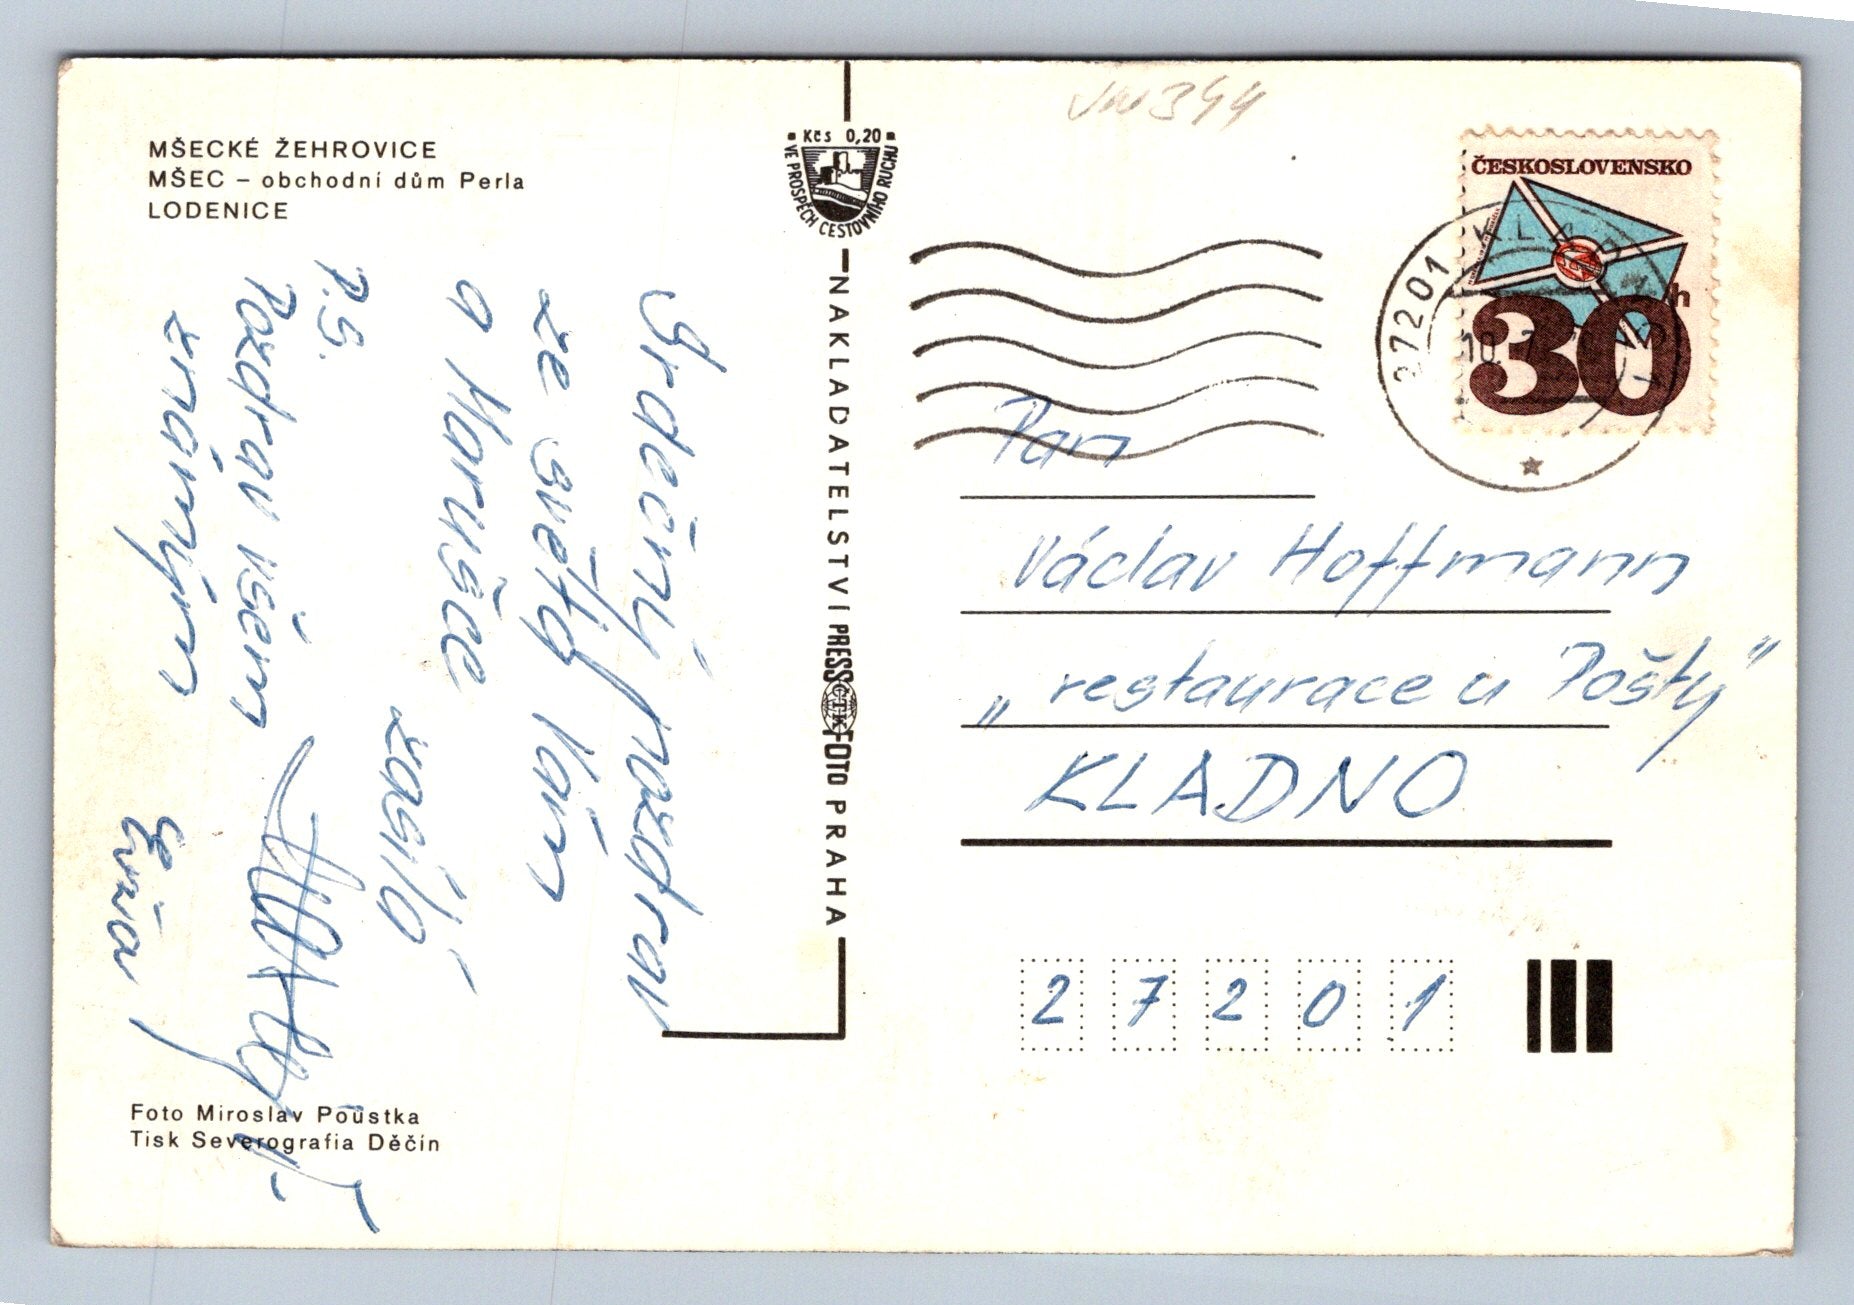 MŠECKÉ ŽEHROVICE
MŠEC – obchodní dům Perla
LODENICE
Srdečný pozdrav
ze světa Vám
a Marušce
zasílá
P.S.
Pozdrav všem
známým
Foto Miroslav Poustka
Tisk Severografia Děčín
Kčs 0,20
VE PROSPĚCH CESTOVNÍHO RUCHU
NAKLADATELSTVÍ PRESSFOTO PRAHA
ČTK
ČESKOSLOVENSKO
30 h
272 01 KLADNO 1
Pan
Václav Hoffmann
„restaurace u Pošty“
KLADNO
27201